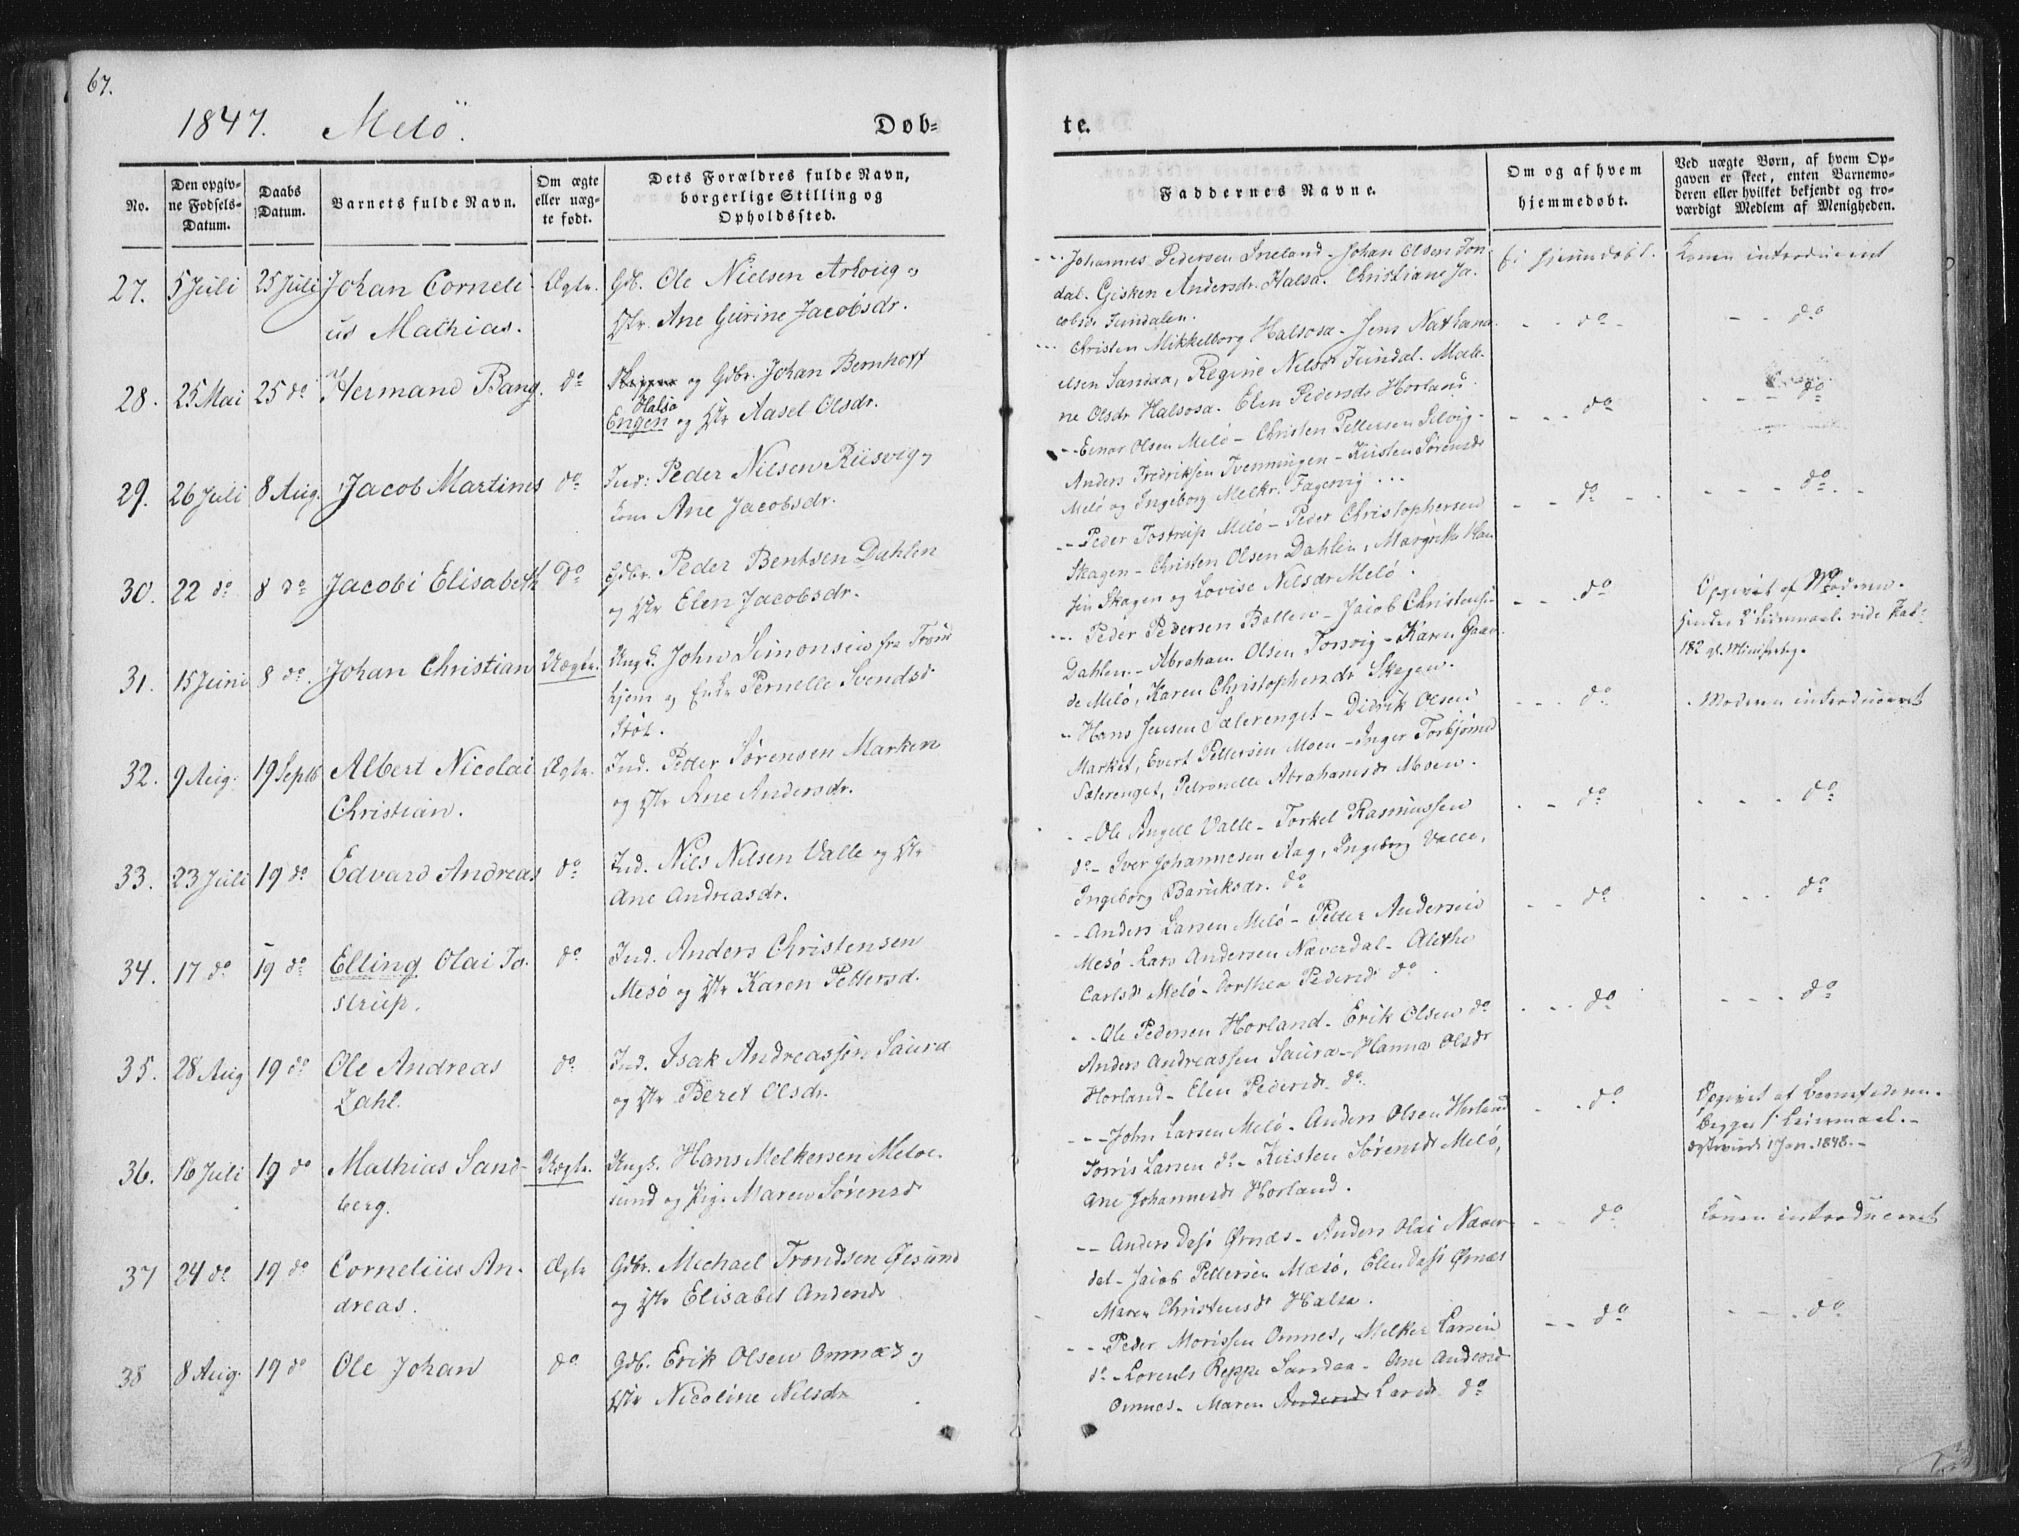 67.
1847. Melö.
Døb-
te.
No.
Den opgiv-
ne Fødsels-
Datum.
Daabs
Datum.
Barnets fulde Navn.
Om ægte
eller uæg-
te født.
Dets Forældres fulde Navn,
borgerlige Stilling og
Opholdssted.
Faddernes Navne.
Om og af hvem
hjemmedøbt.
Ved uægte Børn, af hvem Op-
gaven er skeet, enten Barnemo-
deren eller hvilket bekjendt og tro-
værdigt Medlem af Menigheden.
27. 5 Juli 25 Juli Johan Corneli-
us Mathias.
Ægte. Gb. Ole Nielsen
Ane Gurine Jacobsdr.
Johannes Pedersen Ineland - Johan Olsen Fon-
dal. Gisken Andersdr. Halsa. Christiane Ja-
cobsdr Fondalen.
Konen introduceret
28. 25 Mai 25 do Hermand Bang. do
og Gdbr. Johan Bernhoft
Halsø
Engen og Aasel Olsdr.
Christen Mikkelborg Halsosa - Jens Nathana-
elsen Sandaa, Regine Nilsdr Fondal. Male-
ne Olsdr Halsosa. Elen Pedersdr Horland.
do do
29. 26 Juli 8 Aug. Jacob Martinus do
Ind: Peder Nilsen Riisvig
Ane Jacobsdr.
Einar Olsen Melö - Christen Pettersen Selvig -
Anders Fredriksen Tvenningen - Kirsten Sørensdr
Melö og Ingeborg Melkr. Fagervig
do do
30. 22 do 8 do Jacobi Elisabeth do
Gdbr. Peder Bentsen Dahlen
og Elen Jacobsdr.
Peder Tostrup Melö - Peder Christophersen
Skagen - Christen Olsen Dahlen, Margrethe Han-
sen Skagen og Lovise Nilsdr Melö.
do do
31. 15 Juni 8 do. Johan Christian Uægte.
Ungk. John Simonsen fra Trond
hjem og Enke Pernelle Svendsd
Støt.
Peder Pedersen Bollen - Jacob Christensen
Dahlen - Abraham Olsen Torsvig - Karen Gaar-
de Melö, Karen Christophersdr Skagen.
do Opgivet af Moderen.
32. 9 Aug. 19 Septb Albert Nicolai
Christian.
Ægte. Ind. Peder Sørensen Marken
og Ane Andersdr.
Hans Jensen Sæterenget - Didrik Olsen
Market, Evert Pettersen Moen - Inger Torbjørnsd
Sæterenget, Petronelle Abrahamsdr Moen.
do Moderen introduceret
33. 23 Juli 19 do Edvard Andreas do
Ind. Nils Nilsen Valle og
Ane Andreasdr.
Ole Angell Valle - Torkel Rasmussen
do - Iver Johannesen Aag, Ingeborg Valle,
Ingeborg Baruksdr. do
do do
34. 17 do 19 do Elling Olai To-
strup.
do Ind. Anders Christensen
Mesö og Karen Pettersd.
Anders Larsen Melö - Petter Andersen
Mesö - Lars Andersen Næverdal - Alethe
Carlsdr Melö - Dorthea Pedersdr do
do do
35. 28 Aug 19 do Ole Andreas
Zahl.
do Ind. Isak Andreassen Saura
og Beret Olsdr.
Ole Pedersen Horland - Erik Olsen do
Anders Andreassen Saura - Hanna Olsdr
Horland - Elen Pedersdr do
do do
36. 16 Juli 19 do Mathias Sand-
berg.
Uægte. Ungk. Hans Melkersen Meløe-
sund og Pig. Maren Sørensdr
John Larsen Melö - Anders Olsen Horland
Torris Larsen do - Kirsten Sørensdr Melö,
Ane Johannesdr Horland.
do Opgivet af Barnefaderen.
Begges 1 Leiermaal. -
1 Jan. 1848. -
37 24 do 19 do Cornelius An-
dreas.
Ægte Gdbr. Michael Trondsen Øesund
og Elisabet Andersdr
Anders Dass Ørnæs - Anders Olai Næver-
dal - Jacob Pettersen Mesö, Elen Dass Ørnæs
Maren Christensdr Halsa.
do Konen introduceret
38 8 Aug. 19 do Ole Johan do
Gdb. Erik Olsen Omnæs og
Nicoline Nilsdr
Peder Morissen Omnes, Melker Larsen
do - Lorents Reppe Sandaa - Ane Andersd
Omnes - Maren Andersd Larsdr do
do do